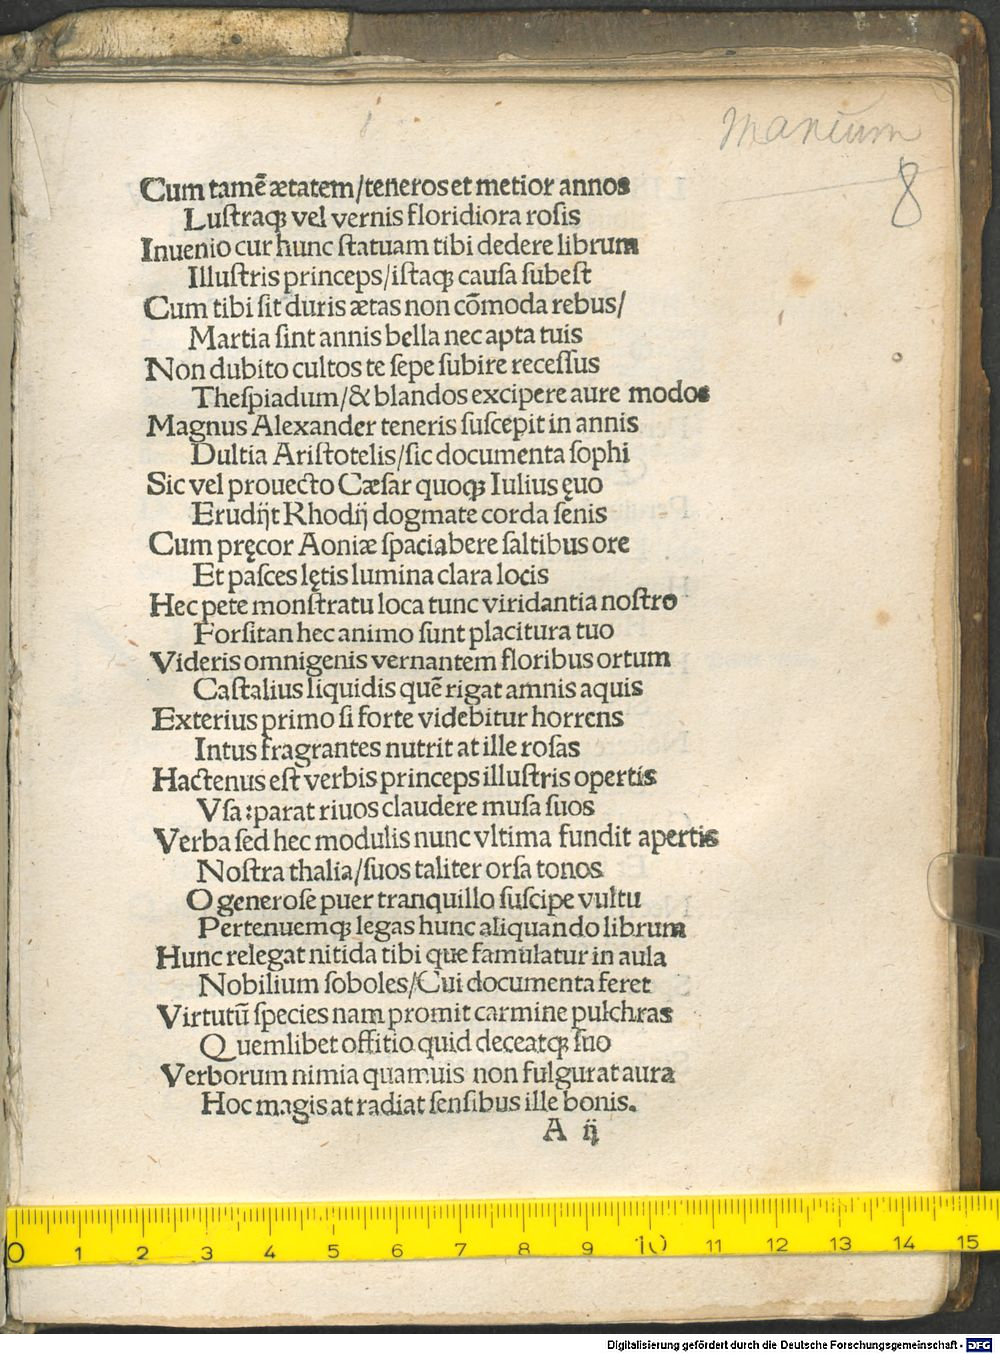 Manium
8
Cum tamē ætatem/teneros et metior annos
Lustraqꝫ vel vernis floridiora rosis
Inuenio cur hunc statuam tibi dedere librum
Illustris princeps/istaqꝫ causa subest
Cum tibi sit duris ætas non cōmoda rebus/
Martia sint annis bella nec apta tuis
Non dubito cultos te sepe subire recessus
Thespiadum/& blandos excipere aure modos
Magnus Alexander teneris suscepit in annis
Dultia Aristotelis/sic documenta sophi
Sic vel prouecto Cæsar quoqꝫ Iulius ęuo
Erudijt Rhodij dogmate corda senis
Cum pręcor Aoniæ spaciabere saltibus ore
Et pasces lętis lumina clara locis
Hec pete monstratu loca tunc viridantia nostro
Forsitan hec animo sunt placitura tuo
Videris omnigenis vernantem floribus ortum
Castalius liquidis quē rigat amnis aquis
Exterius primo si forte videbitur horrens
Intus fragrantes nutrit at ille rosas
Hactenus est verbis princeps illustris opertis
Vsa:parat riuos claudere musa suos
Verba sed hec modulis nunc vltima fundit apertis
Nostra thalia/suos taliter orsa tonos
O generose puer tranquillo suscipe vultu
Pertenuemqꝫ legas hunc aliquando librum
Hunc relegat nitida tibi que famulatur in aula
Nobilium soboles/Cui documenta feret
Virtutū species nam promit carmine pulchras
Quemlibet offitio quid deceatqꝫ suo
Verborum nimia quamuis non fulgurat aura
Hoc magis at radiat sensibus ille bonis.
A ij
0 1 2 3 4 5 6 7 8 9 10 11 12 13 14 15
Digitalisierung gefördert durch die Deutsche Forschungsgemeinschaft - DFG